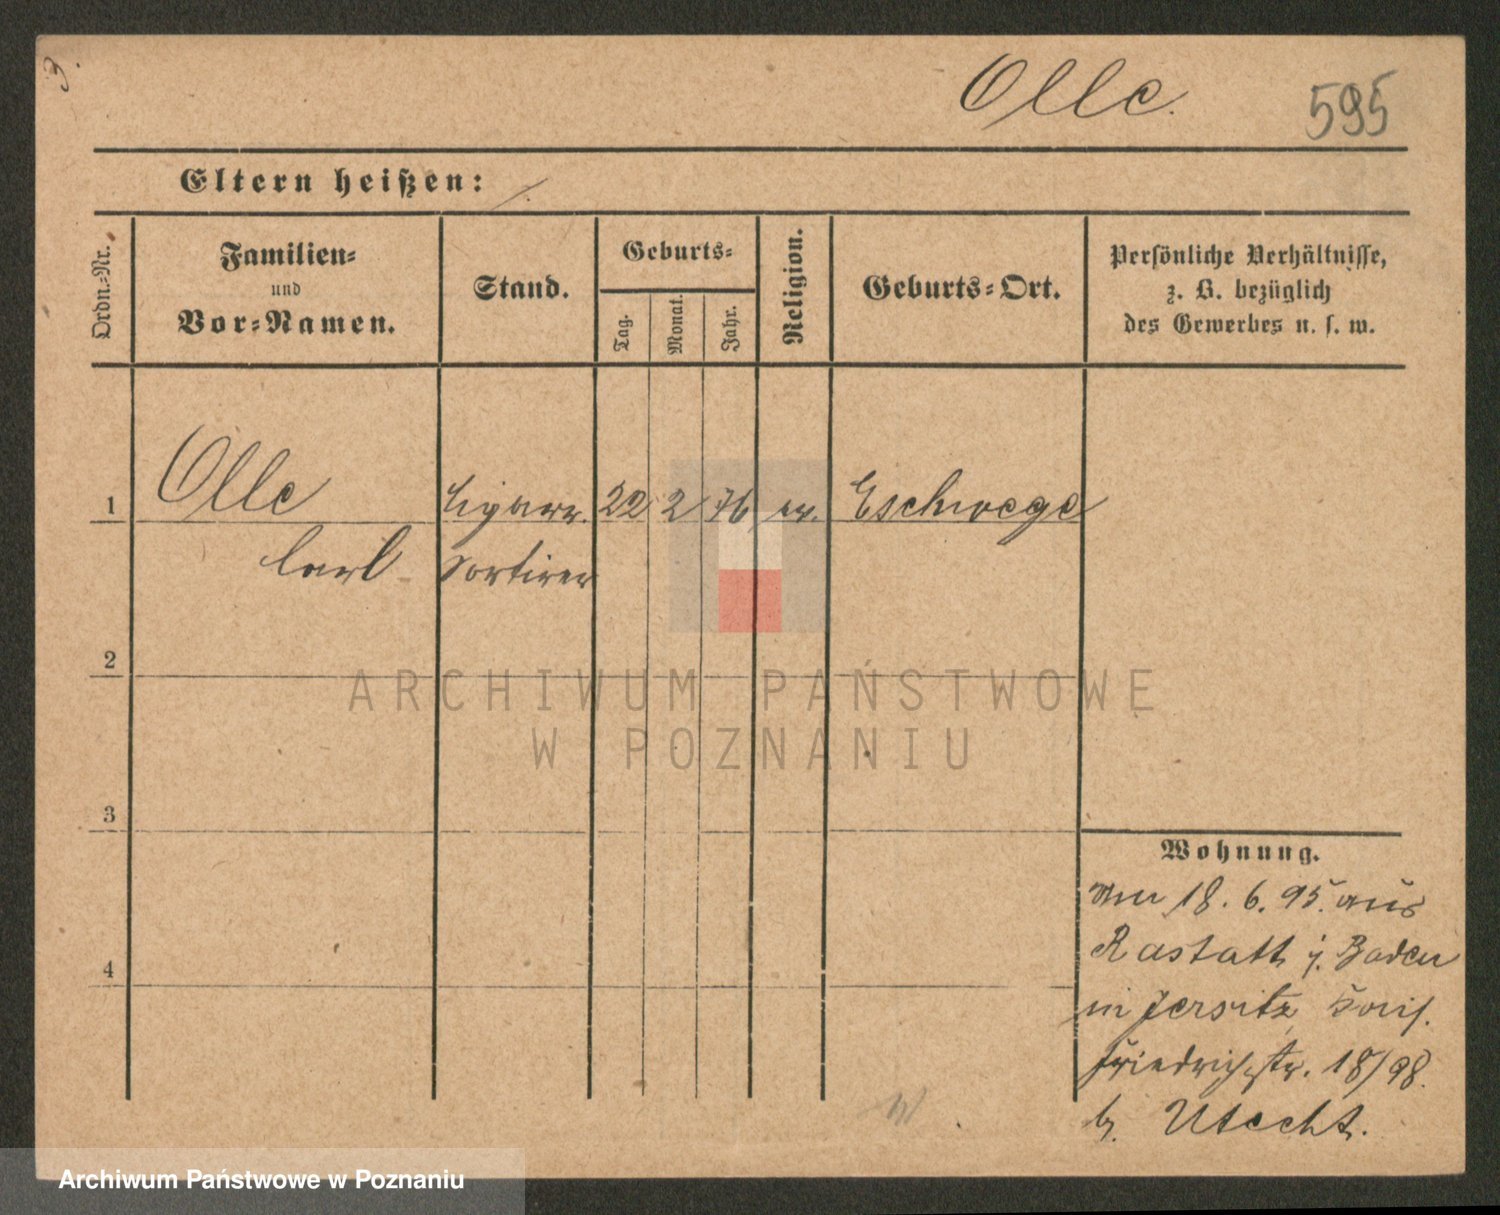 3.
Olle.
595
Eltern heißen: /.
Ordn.-Nr.
Familien-
und
Vor-Namen.
Stand.
Geburts-
Tag.
Monat.
Jahr.
Religion.
Geburts-Ort.
Persönliche Verhältnisse,
z. B. bezüglich
des Gewerbes u. s. w.
1 Olle Cigarr. 22 2 76 ev. Eschwege
Carl Sortirer
2
3
4
Wohnung.
18. 6. 95. aus
Rastatt i. Baden
in Jersitz
Friedrichstr. 18/98.
b. Utecht.
ARCHIWUM PAŃSTWOWE
W POZNANIU
Archiwum Państwowe w Poznaniu